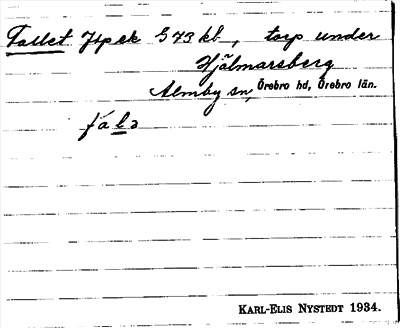 Fallet Jfpsk G 73 kl, torp under
Hjälmarsberg
Almby sn, Örebro hd, Örebro län.
fala
KARL-ELIS NYSTEDT 1934.